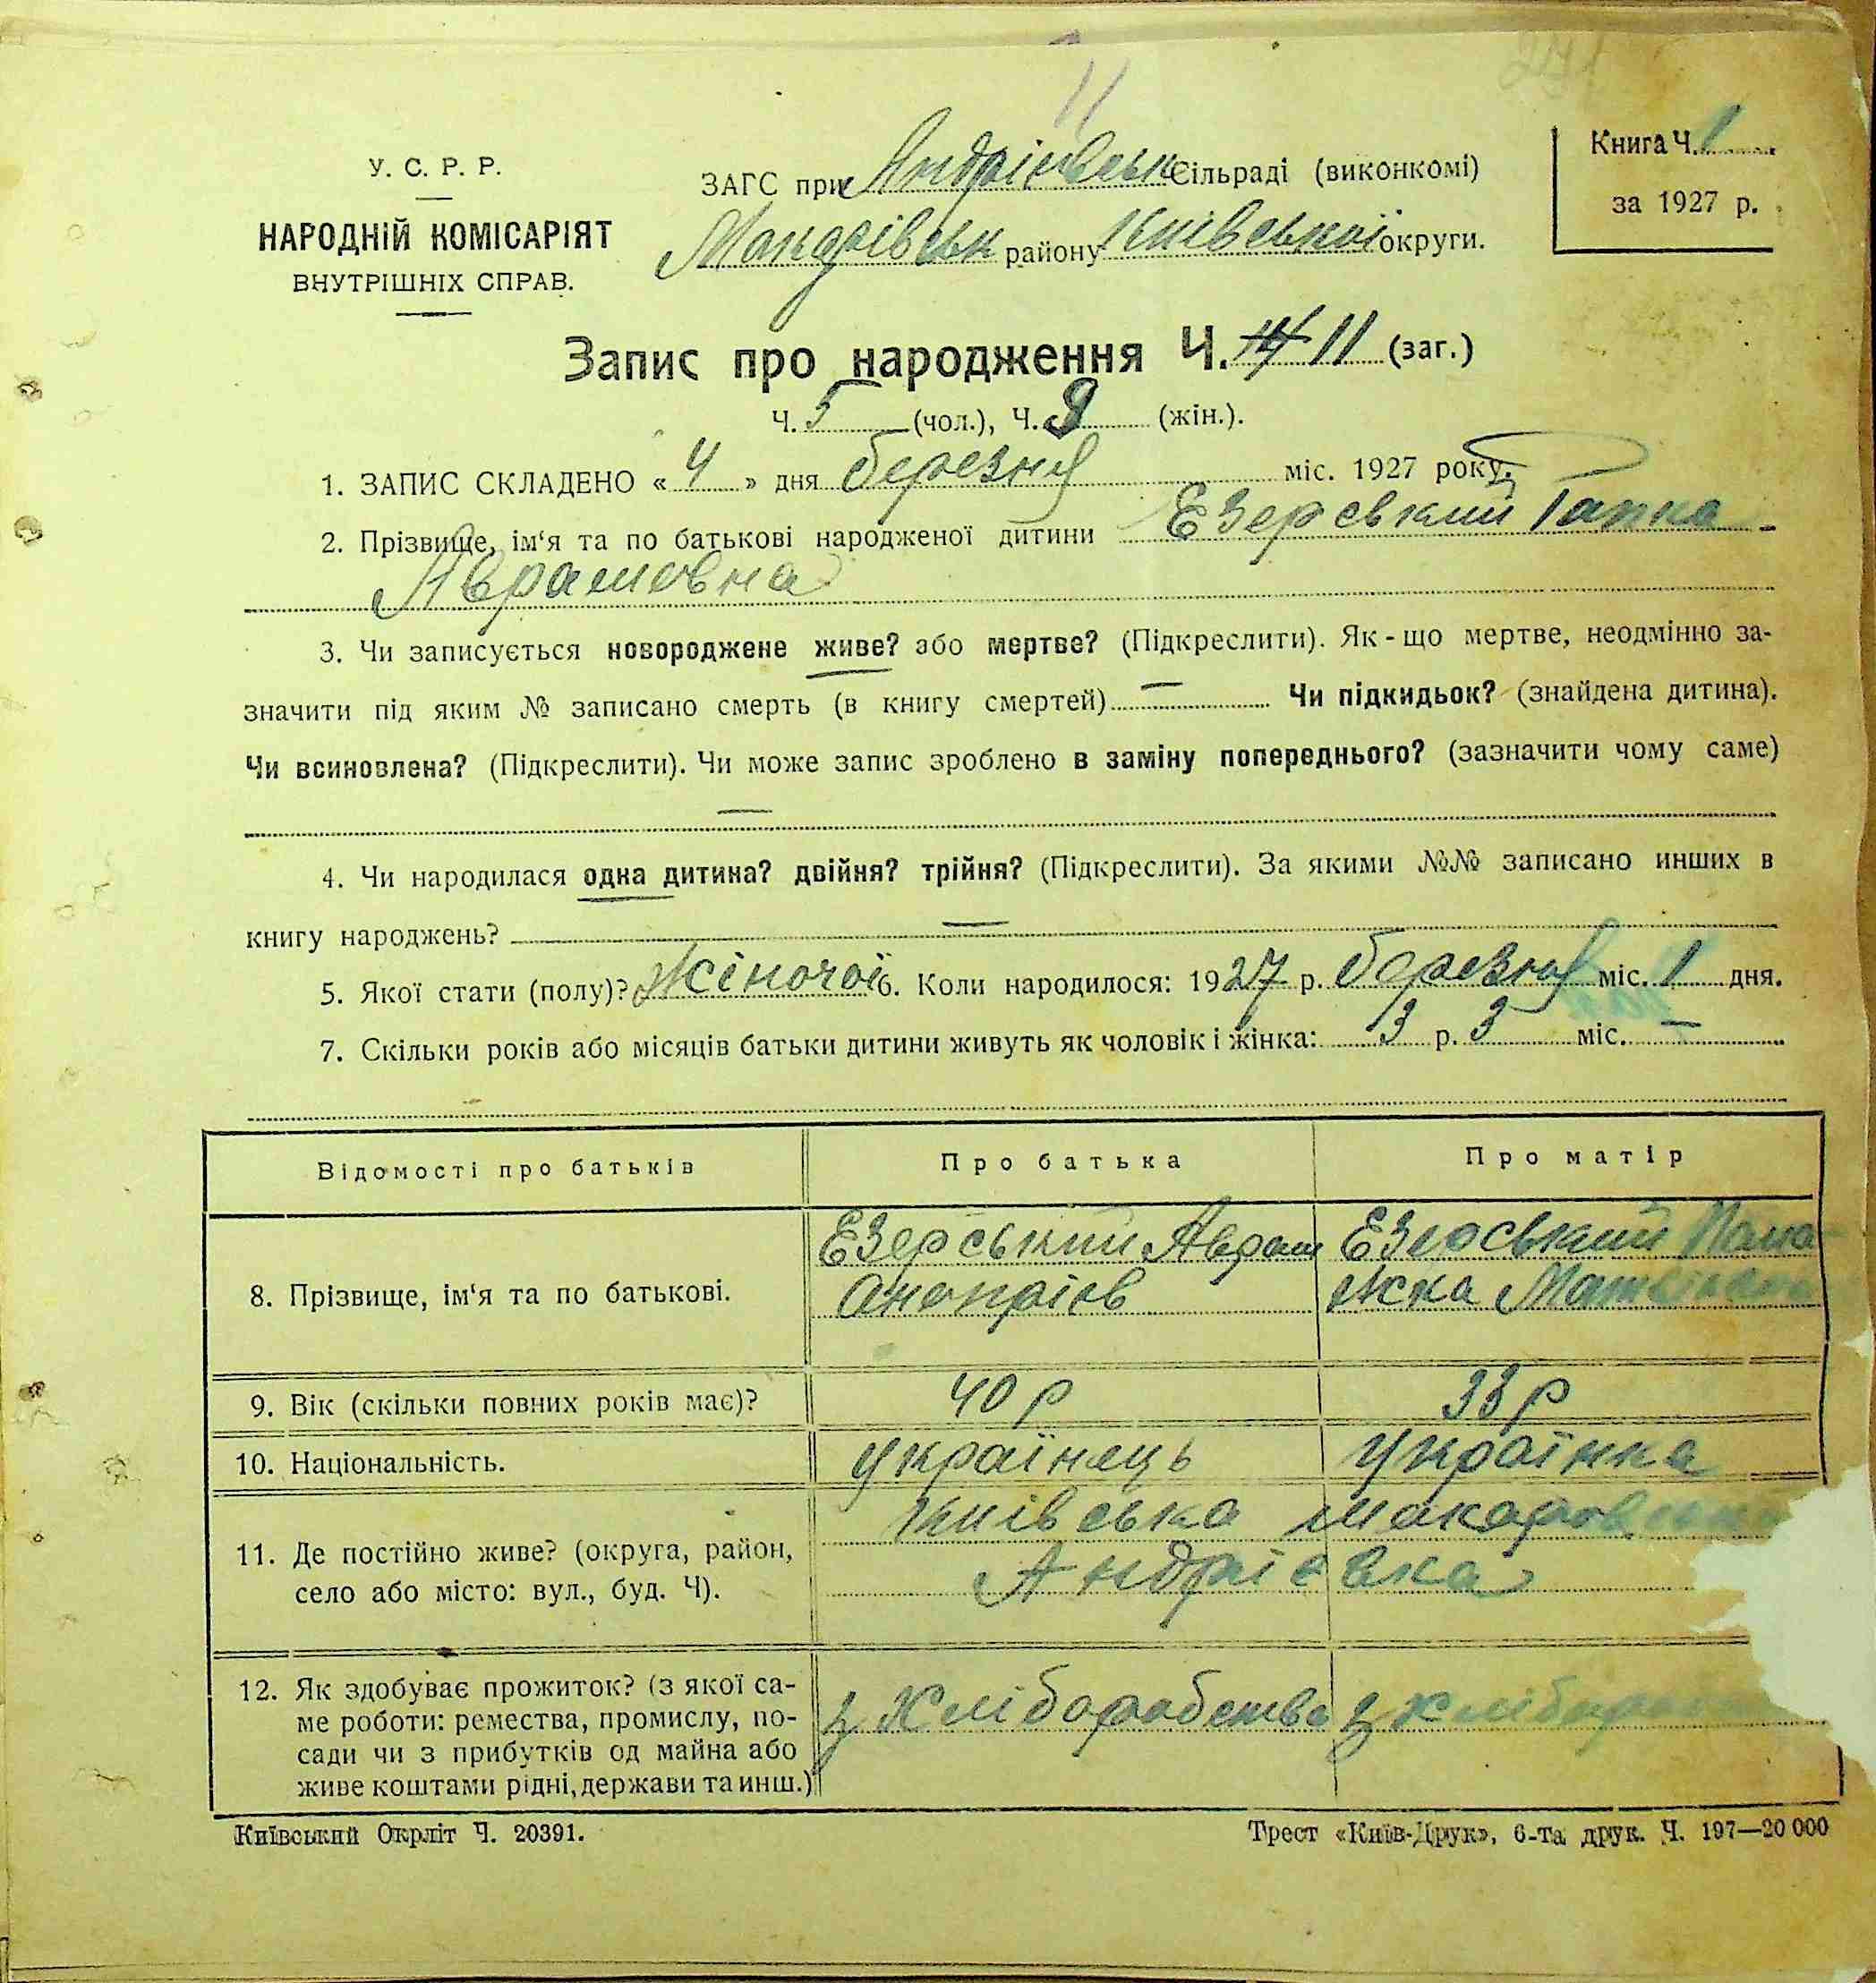 11
У. С. Р. Р.
НАРОДНІЙ КОМІСАРІЯТ
ВНУТРІШНІХ СПРАВ.
ЗАГС при Андріївськ Сільраді (виконкомі)
району Київської округи.
Книга Ч. 1
за 1927 р.
Запис про народження Ч. 11 (заг.)
Ч. 5 (чол.), Ч. 9 (жін.).
1. ЗАПИС СКЛАДЕНО « 4 » дня березня міс. 1927 року.
2. Прізвище, ім‘я та по батькові народженої дитини Езерський Ганна
Аврамовна
3. Чи записується новороджене живе? або мертве? (Підкреслити). Як-що мертве, неодмінно за-
значити під яким № записано смерть (в книгу смертей) — Чи підкидьок? (знайдена дитина).
Чи всиновлена? (Підкреслити). Чи може запис зроблено в заміну попереднього? (зазначити чому саме)
—
4. Чи народилася одна дитина? двійня? трійня? (Підкреслити). За якими №№ записано инших в
книгу народжень? —
5. Якої стати (полу)? Жіночої 6. Коли народилося: 1927 р. березня міс. 1 дня.
7. Скільки років або місяців батьки дитини живуть як чоловік і жінка: 3 р. 3 міс. —
Відомості про батьків Про батька Про матір
8. Прізвище, ім‘я та по батькові.
Езерський Аврам
Онопріїв
Езерський
9. Вік (скільки повних років має)? 40 р 33 р
10. Національність. Українець Українка
11. Де постійно живе? (округа, район,
село або місто: вул., буд. Ч).
Київська
Андріевка
12. Як здобуває прожиток? (з якої са-
ме роботи: ремества, промислу, по-
сади чи з прибутків од майна або
живе коштами рідні, держави та инш.)
з Хліборобства з
Київський Окрліт Ч. 20391.
Трест «Київ-Друк», 6-та друк. Ч. 197—20 000